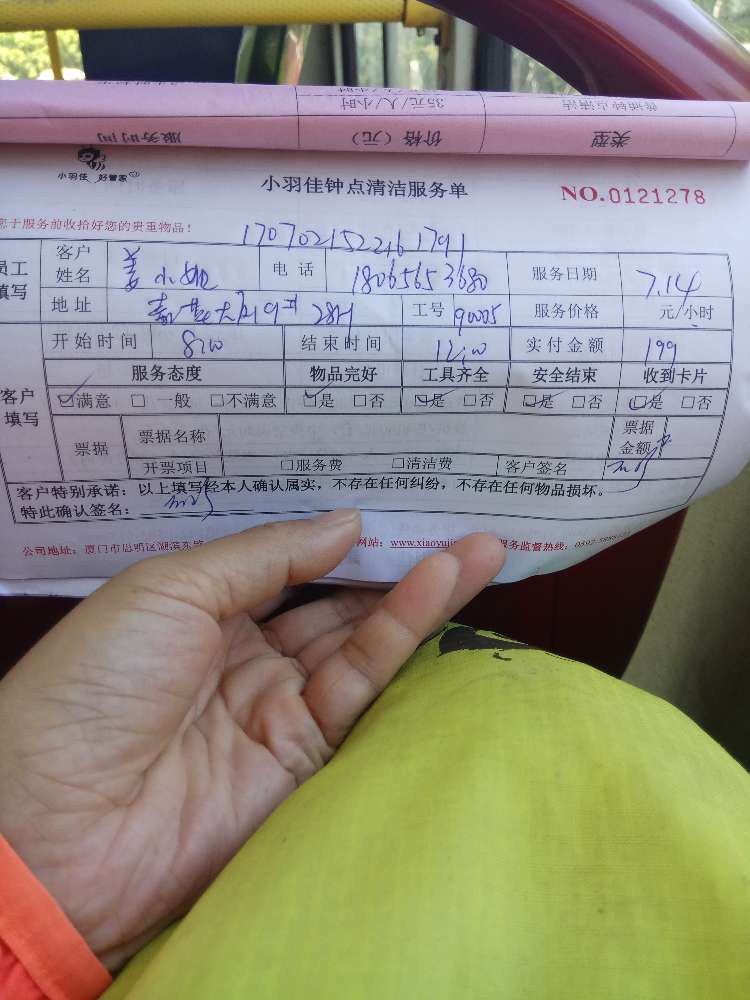 35元/人/小时
类型 价格（元） 服务时间
小羽佳 好管家
小羽佳钟点清洁服务单 NO.0121278
您于服务前收拾好您的贵重物品！
员工填写 客户姓名 姜小姐 电话 18065653680 服务日期 7.14
地址 28H 工号 90005 服务价格 元/小时
开始时间 8:00 结束时间 12:00 实付金额 199
客户填写 服务态度 物品完好 工具齐全 安全结束 收到卡片
☑满意 □一般 □不满意 ☑是 □否 ☑是 □否 ☑是 □否 ☑是 □否
票据 票据名称 票据金额
开票项目 □服务费 □清洁费 客户签名
客户特别承诺：以上填写经本人确认属实，不存在任何纠纷，不存在任何物品损坏。
特此确认签名：
公司地址：厦门市思明区湖滨东路 网站：www.xiaoyuji 服务监督热线：0592-5888